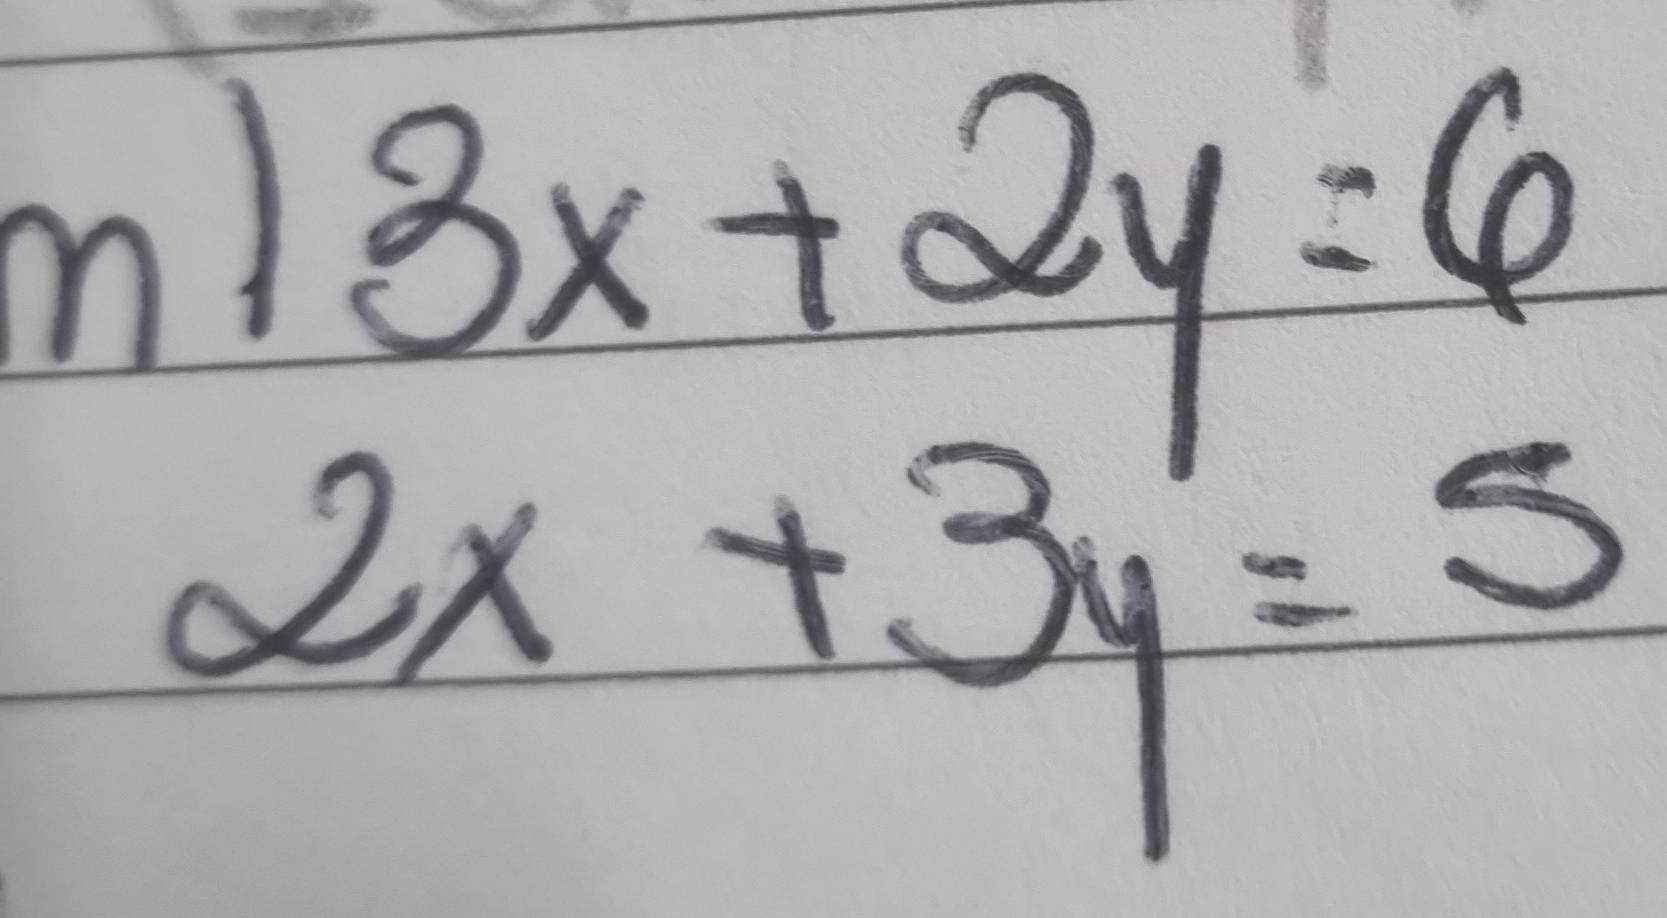 m) 3x + 2y = 6
2x + 3y = 5